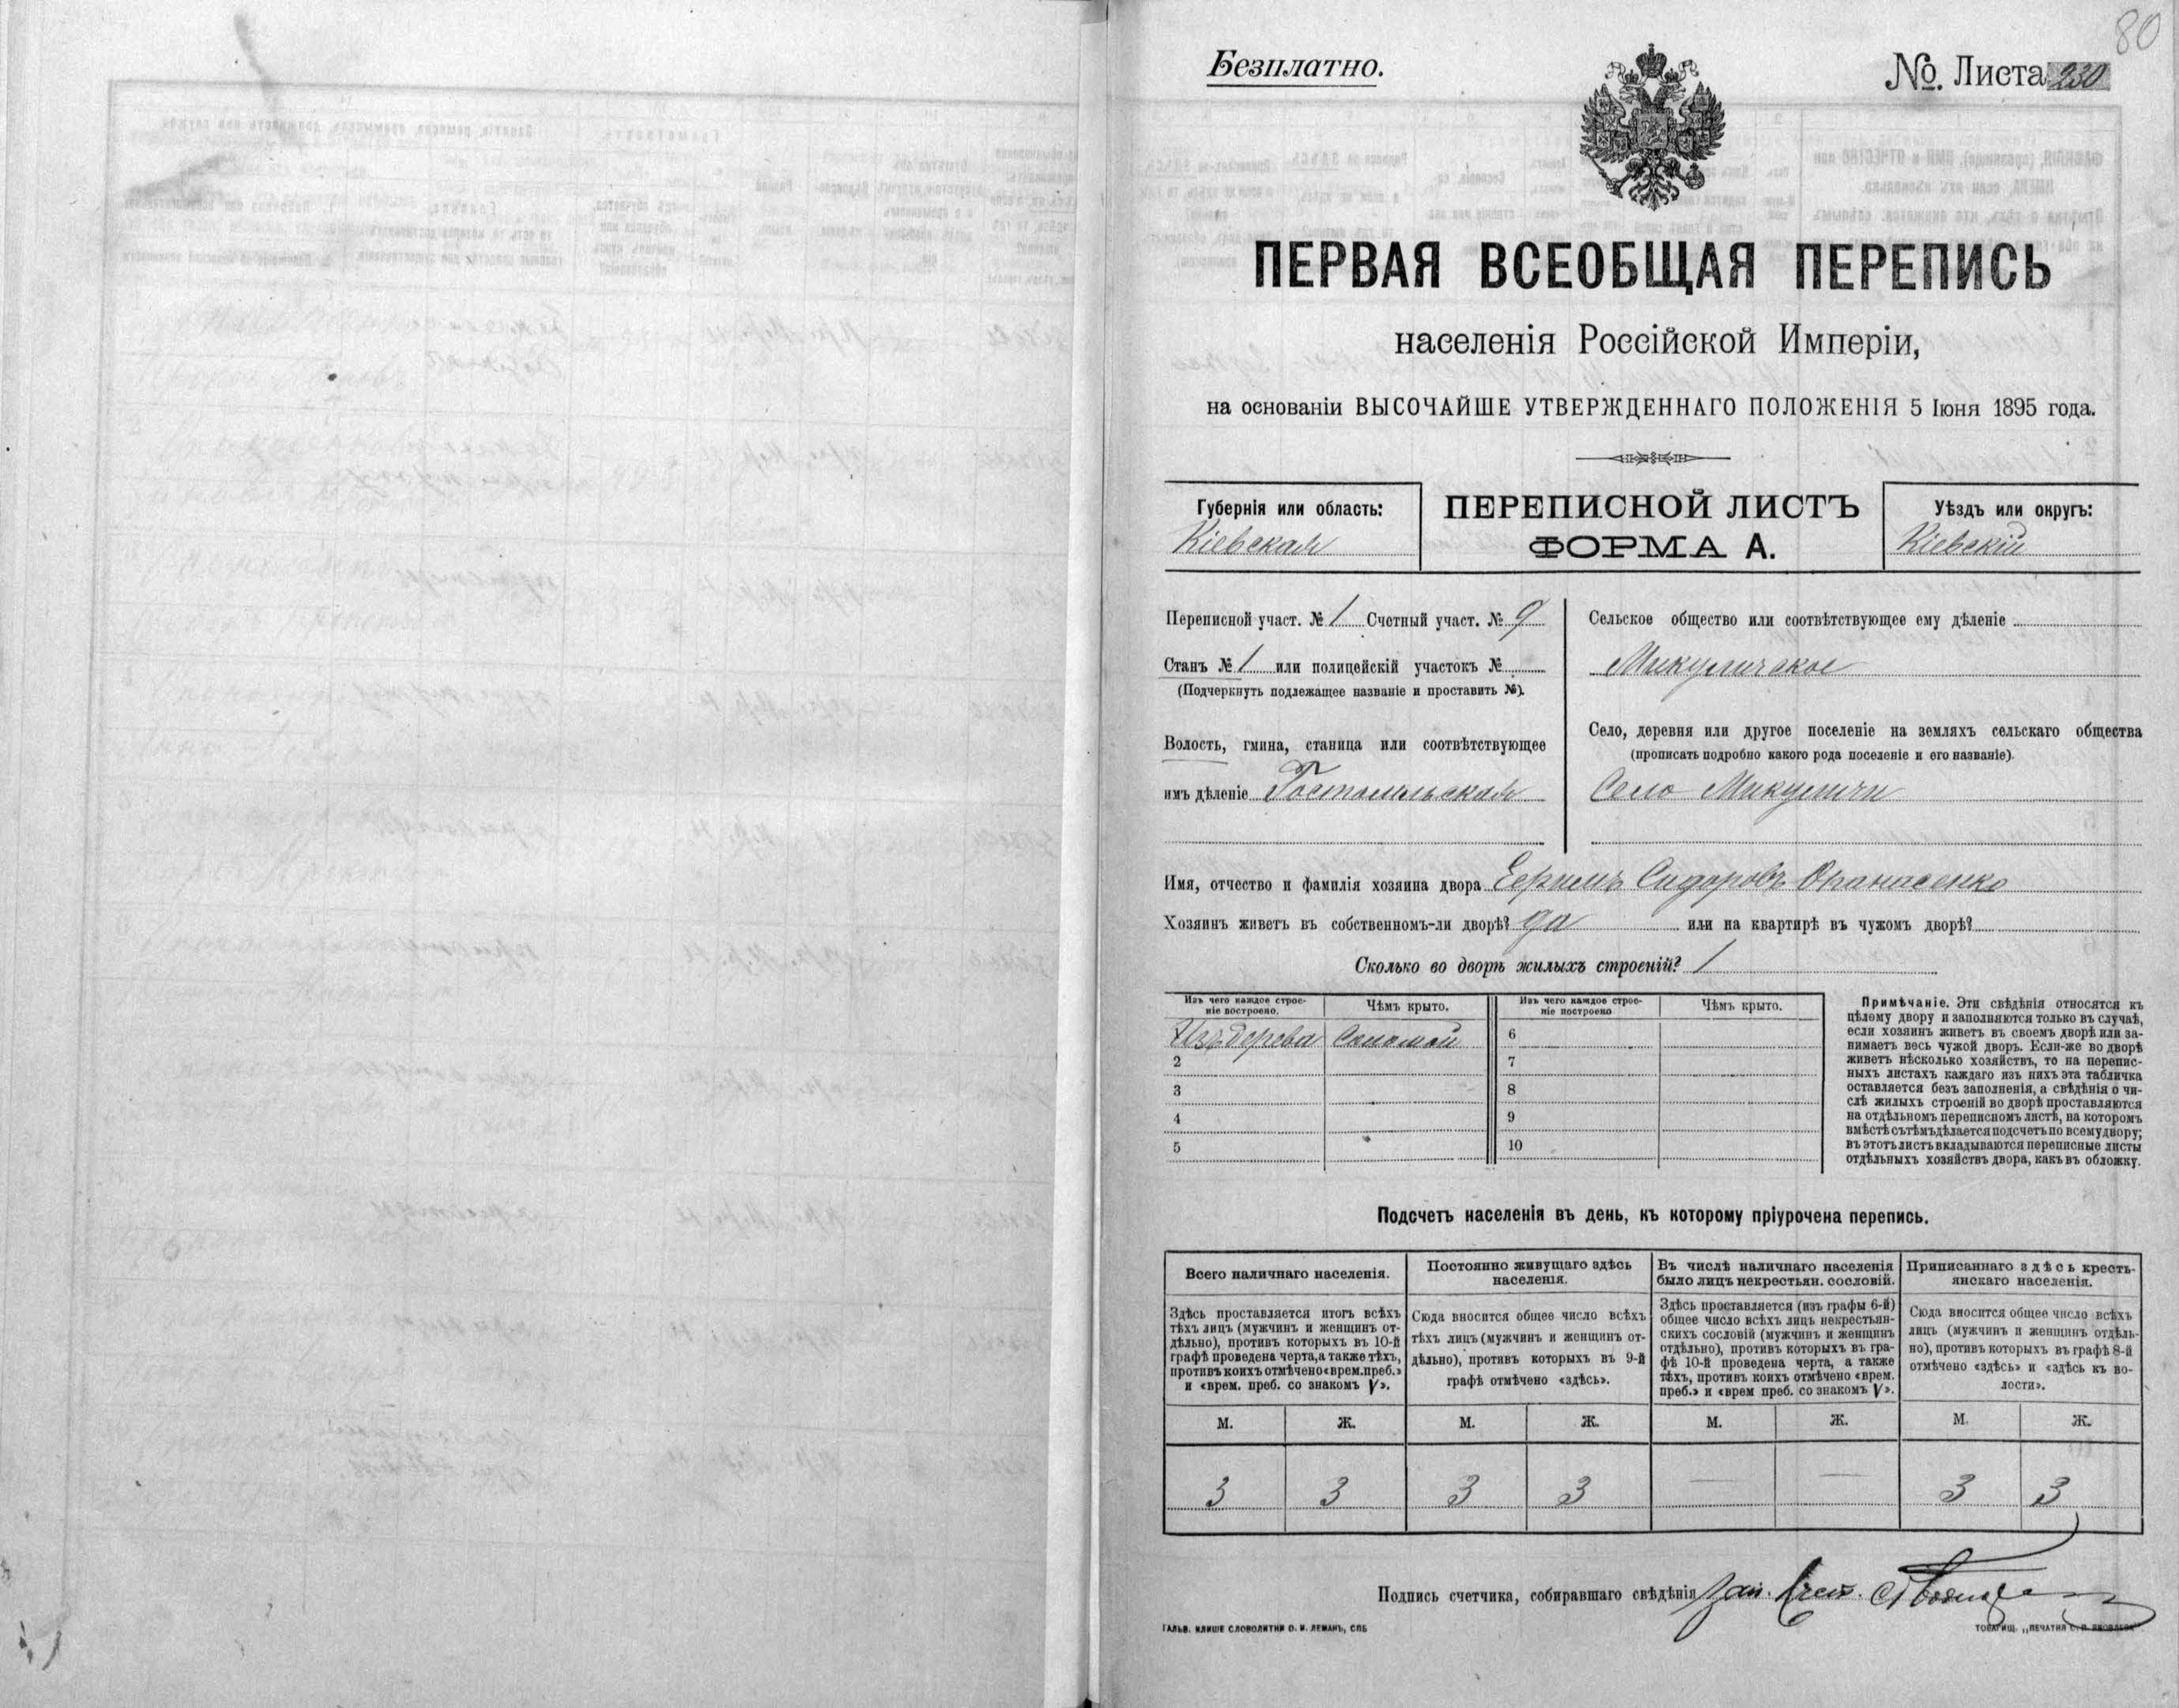 80
Безплатно.
№. Листа 230
ПЕРВАЯ ВСЕОБЩАЯ ПЕРЕПИСЬ
населенія Россійской Имперіи,
на основаніи ВЫСОЧАЙШЕ УТВЕРЖДЕННАГО ПОЛОЖЕНІЯ 5 Іюня 1895 года.
Губернія или область:
Кіевская
ПЕРЕПИСНОЙ ЛИСТЪ
ФОРМА А.
Уѣздъ или округъ:
Кіевскій
Переписной участ. № 1 Счетный участ. № 9
Станъ № 1 или полицейскій участокъ №
(Подчеркнуть подлежащее названіе и проставить №).
Волость, гмина, станица или соотвѣтствующее
имъ дѣленіе Гостомельская
Сельское общество или соотвѣтствующее ему дѣленіе
Микуличское
Село, деревня или другое поселеніе на земляхъ сельскаго общества
(прописать подробно какого рода поселеніе и его названіе).
Село Микуличи
Имя, отчество и фамилія хозяина двора Сидоровъ
Хозяинъ живетъ въ собственномъ-ли дворѣ? да или на квартирѣ въ чужомъ дворѣ?
Сколько во дворѣ жилыхъ строеній? 1
Изъ чего каждое строе-
ніе построено.
Чѣмъ крыто.
Изъ чего каждое строе-
ніе построено
Чѣмъ крыто.
Изъ дерева Соломой 6
2 7
3 8
4 9
5 10
Примѣчаніе. Эти свѣдѣнія относятся къ
цѣлому двору и заполняются только въ случаѣ,
если хозяинъ живетъ въ своемъ дворѣ или за-
нимаетъ весь чужой дворъ. Если-же во дворѣ
живетъ нѣсколько хозяйствъ, то на перепис-
ныхъ листахъ каждаго изъ нихъ эта табличка
оставляется безъ заполненія, а свѣдѣнія о чи-
слѣ жилыхъ строеній во дворѣ проставляются
на отдѣльномъ переписномъ листѣ, на которомъ
вмѣстѣ съ тѣмъ дѣлается подсчетъ по всему двору;
въ этотъ листъ вкладываются переписные листы
отдѣльныхъ хозяйствъ двора, какъ въ обложку.
Подсчетъ населенія въ день, къ которому пріурочена перепись.
Всего наличнаго населенія.
Здѣсь проставляется итогъ всѣхъ
тѣхъ лицъ (мужчинъ и женщинъ от-
дѣльно), противъ которыхъ въ 10-й
графѣ проведена черта, а также тѣхъ,
противъ коихъ отмѣчено «врем. преб.»
и «врем. преб. со знакомъ V».
Постоянно живущаго здѣсь
населенія.
Сюда вносится общее число всѣхъ
тѣхъ лицъ (мужчинъ и женщинъ от-
дѣльно), противъ которыхъ въ 9-й
графѣ отмѣчено «здѣсь».
Въ числѣ наличнаго населенія
было лицъ некрестьян. сословій.
Здѣсь проставляется (изъ графы 6-й)
общее число всѣхъ лицъ некрестьян-
скихъ сословій (мужчинъ и женщинъ
отдѣльно), противъ которыхъ въ гра-
фѣ 10-й проведена черта, а также
тѣхъ, противъ коихъ отмѣчено «врем.
преб.» и «врем преб. со знакомъ V».
Приписаннаго здѣсь кресть-
янскаго населенія.
Сюда вносится общее число всѣхъ
лицъ (мужчинъ и женщинъ отдѣль-
но), противъ которыхъ въ графѣ 8-й
отмѣчено «здѣсь» и «здѣсь къ во-
лости».
М. Ж. М. Ж. М. Ж. М. Ж.
3 3 3 3 — — 3 3
Подпись счетчика, собиравшаго свѣдѣнія
ГАЛЬВ. КЛИШЕ СЛОВОЛИТНИ О. И. ЛЕМАНЪ, СПБ
ТОВАРИЩ. „ПЕЧАТНЯ С. П. ЯКОВЛЕВА"